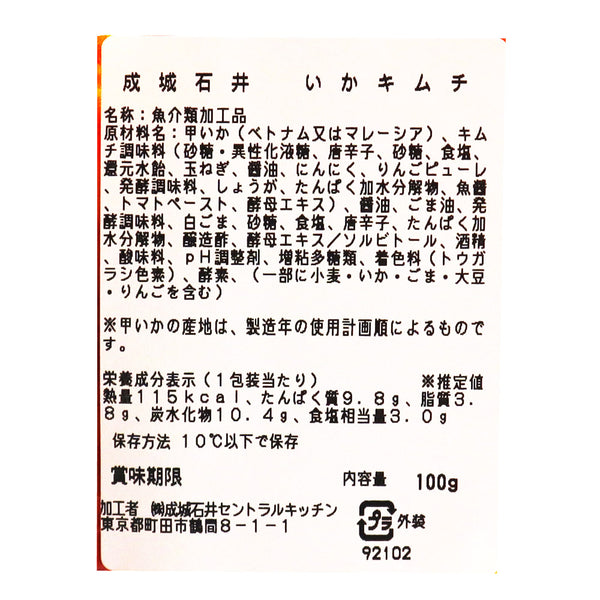 成城石井　いかキムチ
名称：魚介類加工品
原材料名：甲いか（ベトナム又はマレーシア）、キム
チ調味料（砂糖・異性化液糖、唐辛子、砂糖、食塩、
還元水飴、玉ねぎ、醤油、にんにく、りんごピューレ
、発酵調味料、しょうが、たんぱく加水分解物、魚醤
、トマトペースト、酵母エキス）、醤油、ごま油、発
酵調味料、白ごま、砂糖、食塩、唐辛子、たんぱく加
水分解物、醸造酢、酵母エキス／ソルビトール、酒精
、酸味料、ｐH調整剤、増粘多糖類、着色料（トウガ
ラシ色素）、酵素、（一部に小麦・いか・ごま・大豆
・りんごを含む）
※甲いかの産地は、製造年の使用計画順によるもので
す。
栄養成分表示（１包装当たり）　※推定値
熱量１１５kcal、たんぱく質９．８g、脂質３．
８g、炭水化物１０．４g、食塩相当量３．０g
保存方法 10℃以下で保存
賞味期限　内容量 100g
加工者 ㈱成城石井セントラルキッチン
東京都町田市鶴間８－１－１
プラ 外装
92102